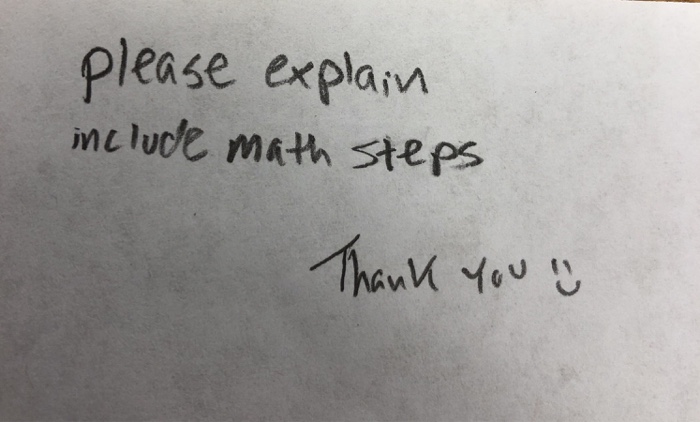 please explain
include math steps
Thank you :)